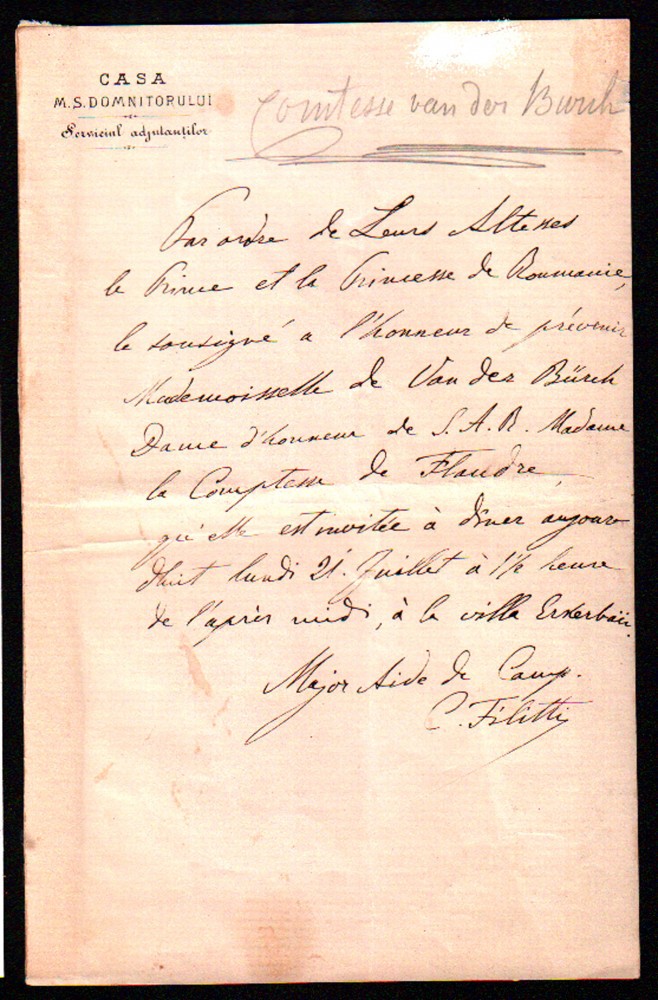 CASA
M.S. DOMNITORULUI
Serviciul adjutanților
Comtesse van der Burch
Par ordre de Leurs Altesses
le Prince et la Princesse de Roumanie,
le sousigné a l'honneur de prévenir
Mademoisselle de Van der Bürch
Dame d'honneur de S. A. R. Madame
la Comptesse de Flandre,
qu'elle est invitée à diner aujour
d'huit lundi 21. Juillet à 1½ heure
de l'après midi, à la villa
Major Aide de Camp.
C. Filitti